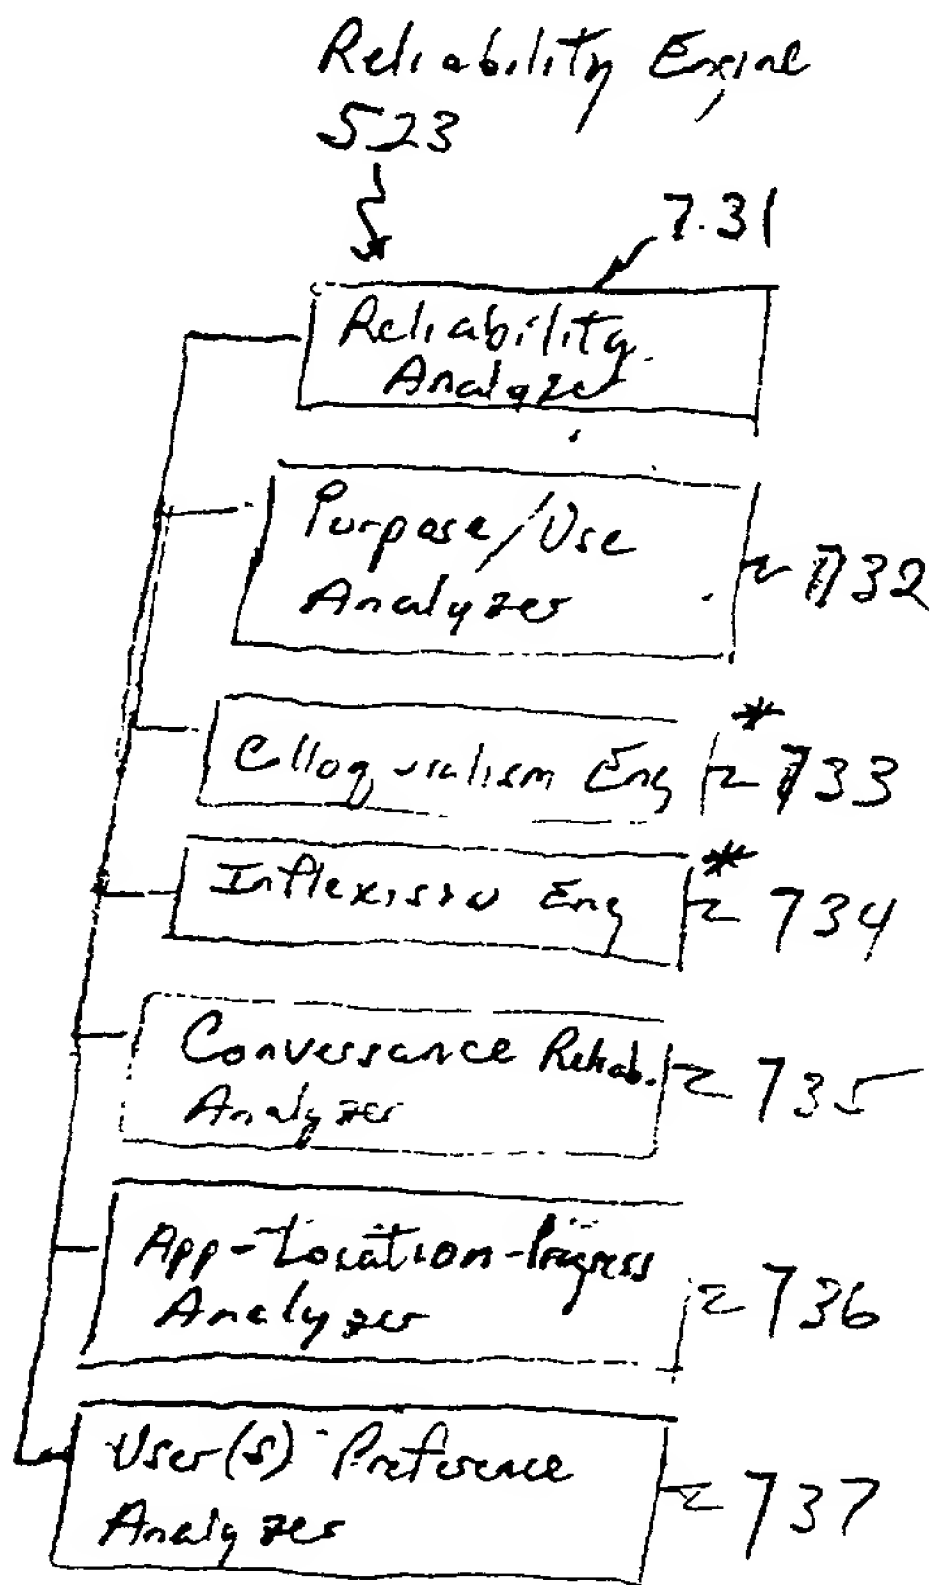 Reliability Engine
523
7.31
Reliability
Analyzer
Purpose/Use
Analyzer
732
Clloquialism Eng
*
733
Inflexision Eng
*
734
Conversance Reliab.
Analyzer
735
App-Location-Progress
Analyzer
736
User(s) Preference
Analyzer
737